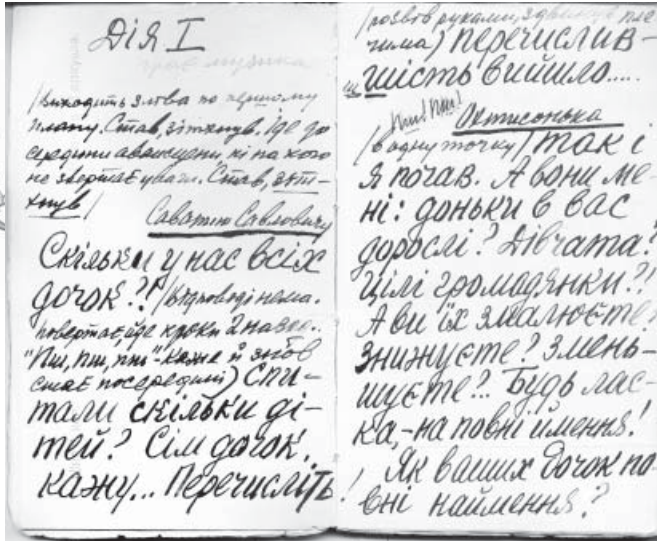 Дія I
грає музика
/Виходить зліва по першому
плану. Став, зітхнув. Іде до
середини авансцени, ні на кого
не звертає уваги. Став, зіт-
хнув/
Саватію Савловичу
Скільки у нас всіх
дочок?! /Відповіді нема.
Повертає, іде кроки 2 назад..
"Пш, пш, пш"-каже й знов
стає посередині) Спи-
тали скільки ді-
тей? Сім дочок,
кажу... Перечисліть!
/розвів руками, здвигнув пле
чима) перечислив-
шість вийшло....
Пш! Пш!
Октисонька
/в одну точку/ Так і
я почав. А вони ме-
ні: доньки в вас
дорослі? Дівчата?
Цілі громадянки?!
А ви їх змалюєте?
Знижуєте? Змень-
шуєте?.. Будь лас-
ка,-на повні ймення!
Як ваших дочок по-
вні наймення?